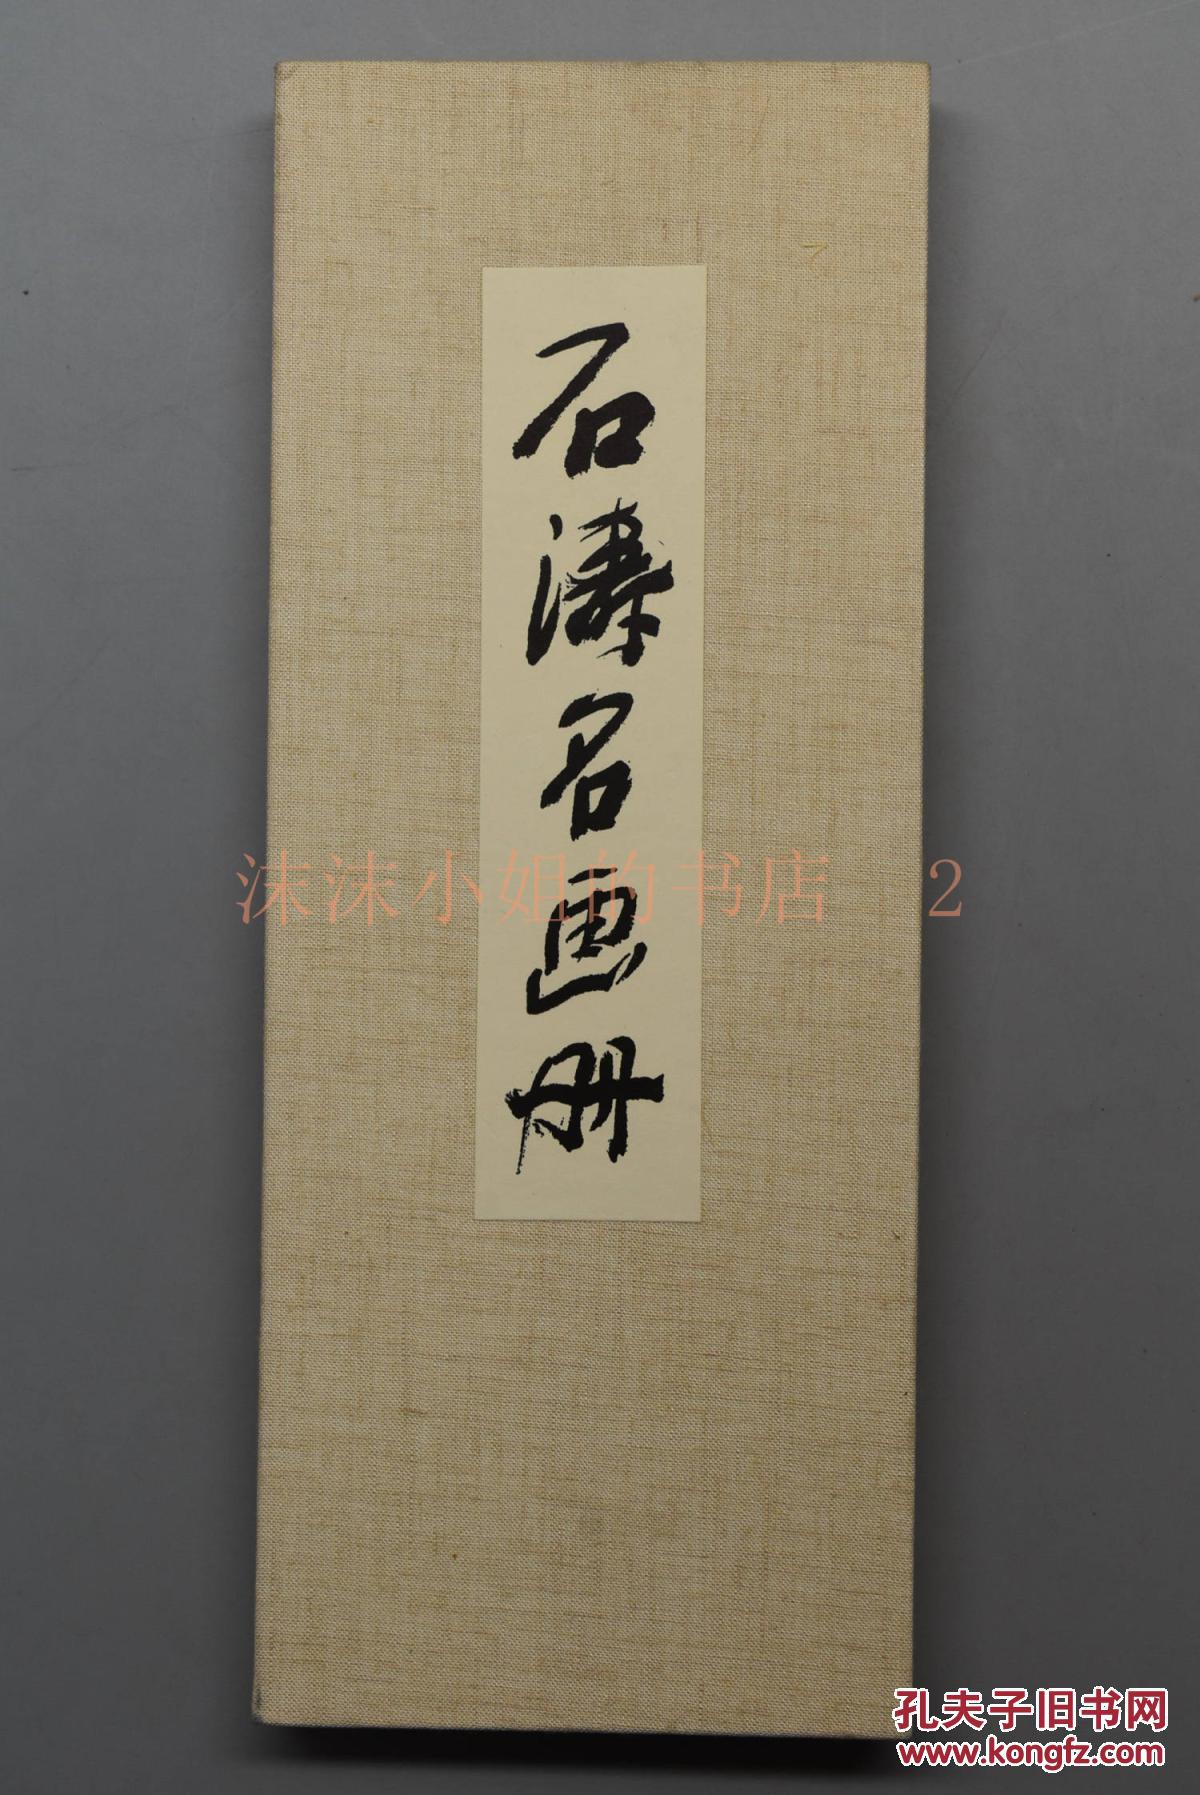 石涛名画册
沫沫小姐的书店 2
孔夫子旧书网
www.kongfz.com